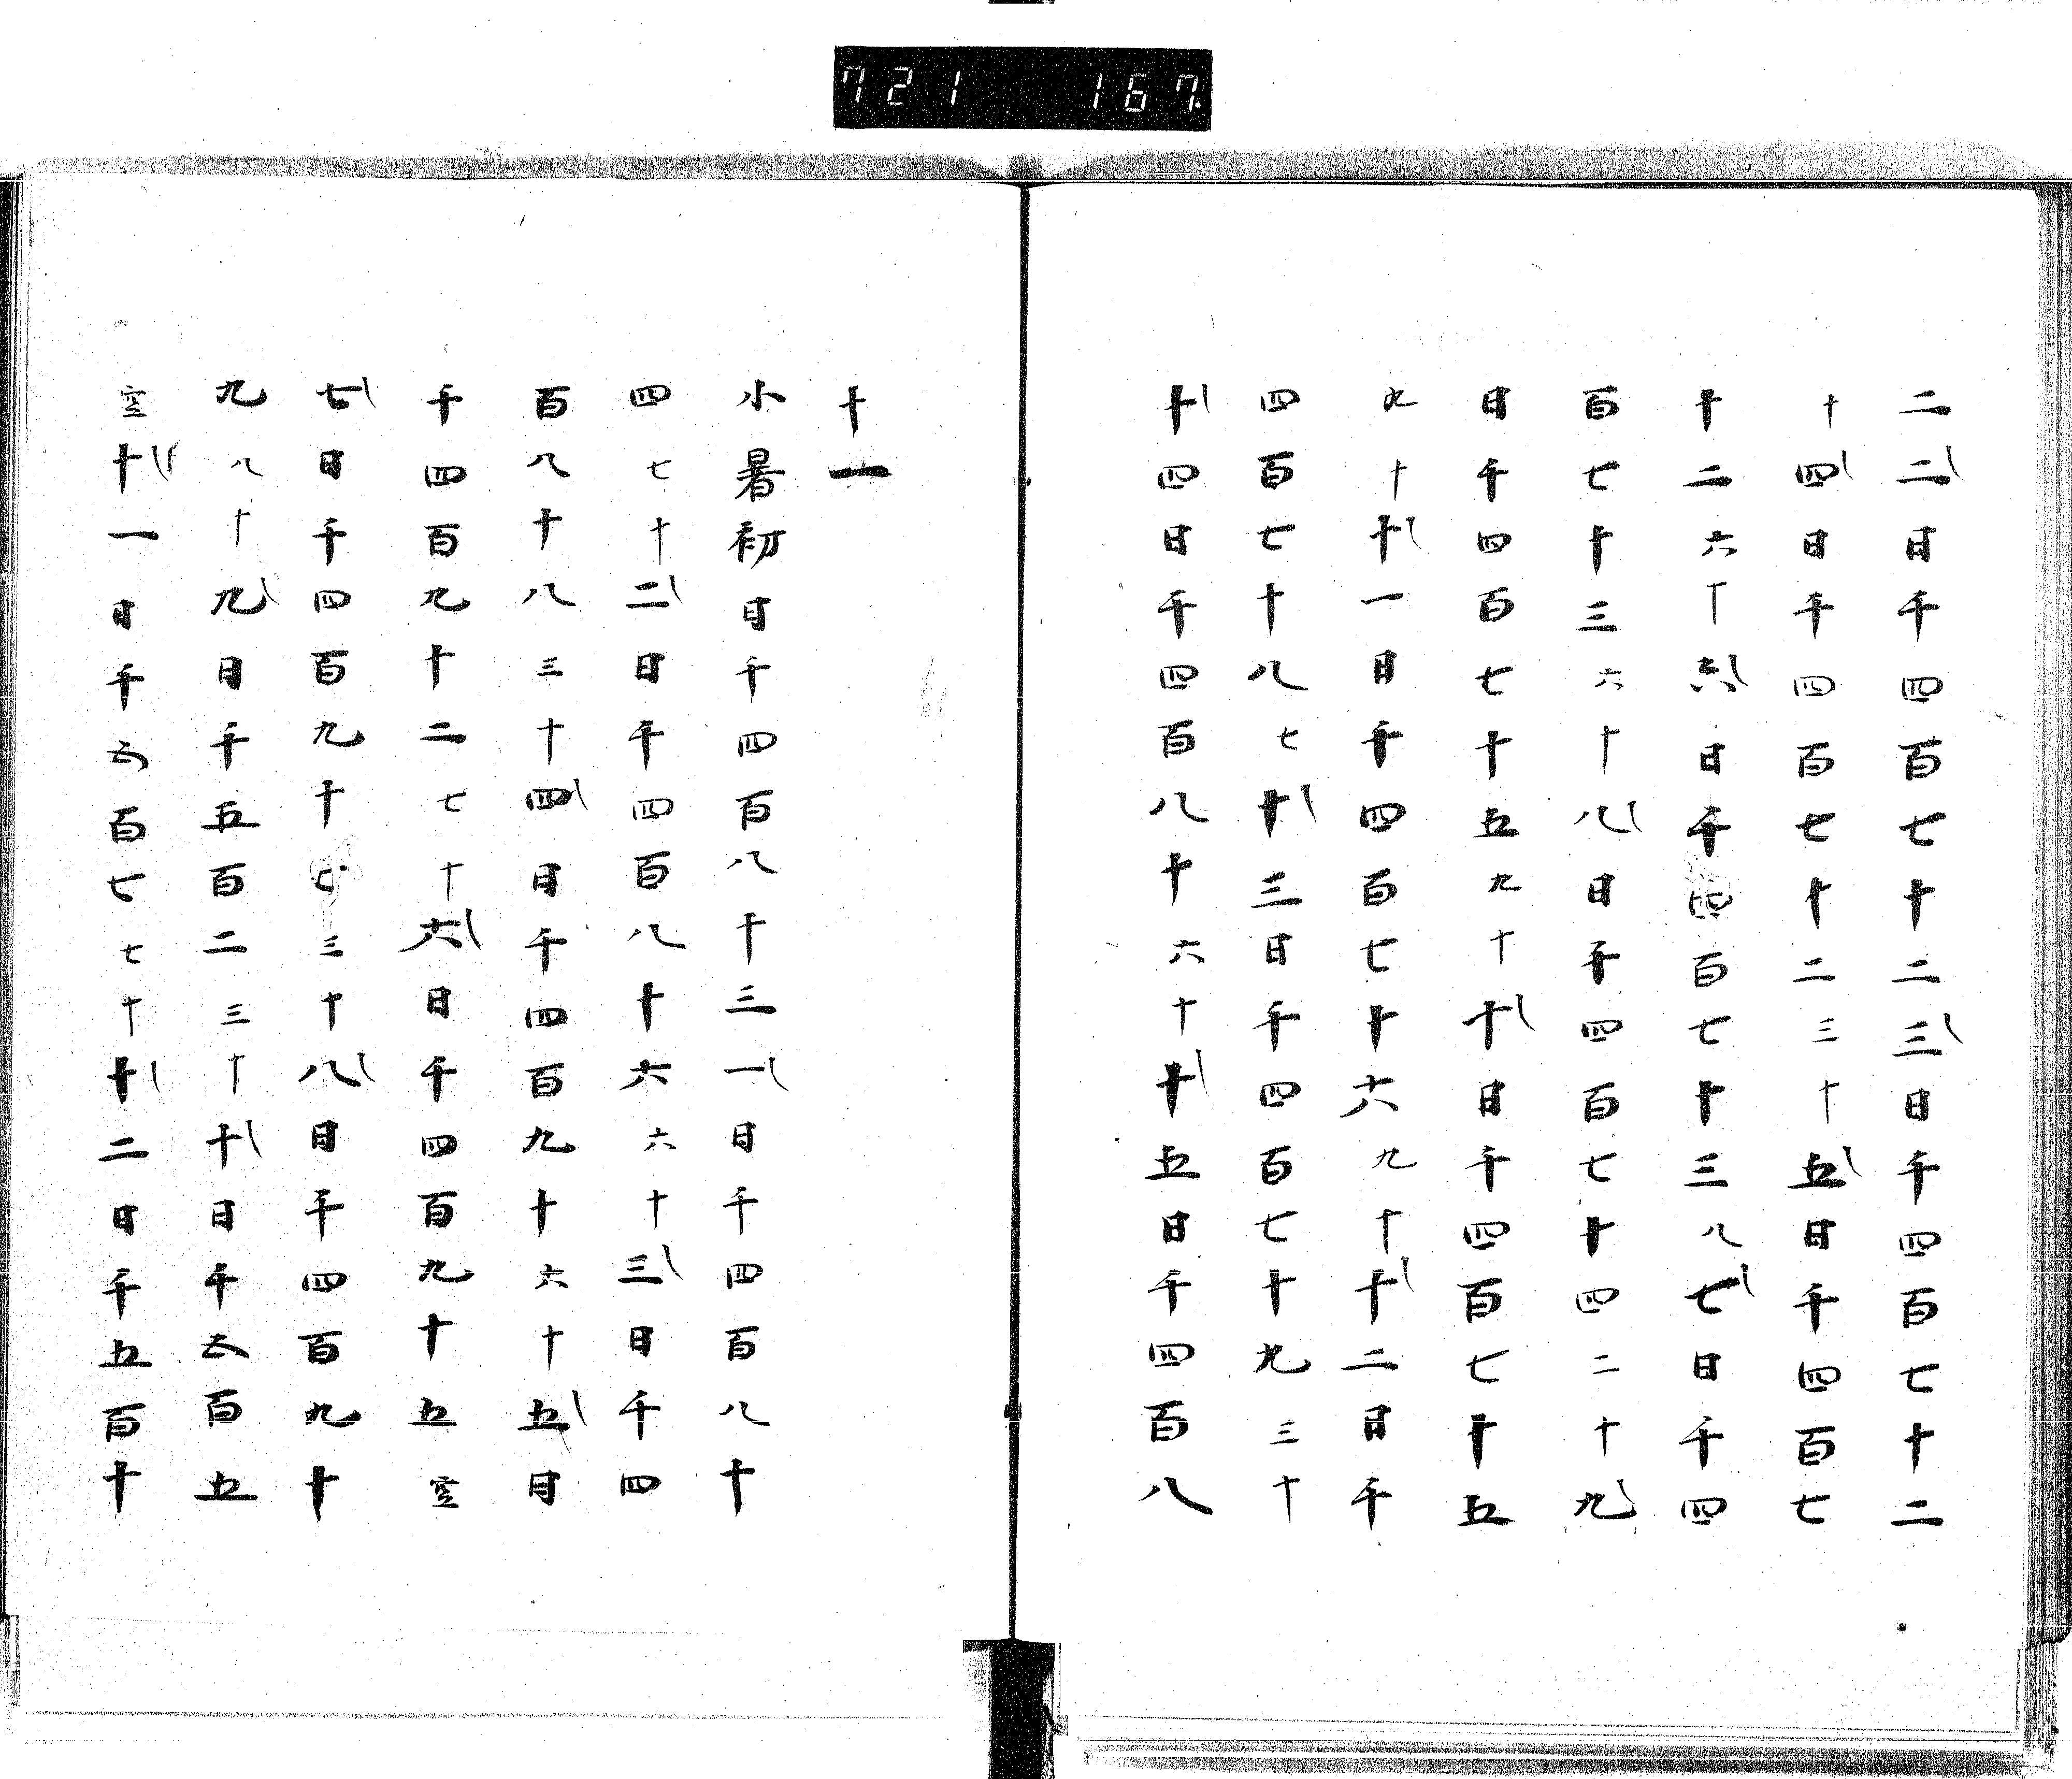 721 167
二二日千四百七十二三日千四百七十二
十四日千四百七十二三十五日千四百七
十二六十六日千四百七十三八七日千四
百七十三六十八日千四百七十四二十九
日千四百七十五九十十日千四百七十五
九十十一日千四百七十六九十十二日千
四百七十八七十三日千四百七十九三十
十四日千四百八十六十十五日千四百八
十一
小暑初日千四百八十三一日千四百八十
四七十二日千四百八十六六十三日千四
百八十八三十四日千四百九十六十五日
千四百九十二七十六日千四百九十五空
七日千四百九十七三十八日千四百九十
九八十九日千五百二三十十日千五百五
空十一日千五百七七十十二日千五百十